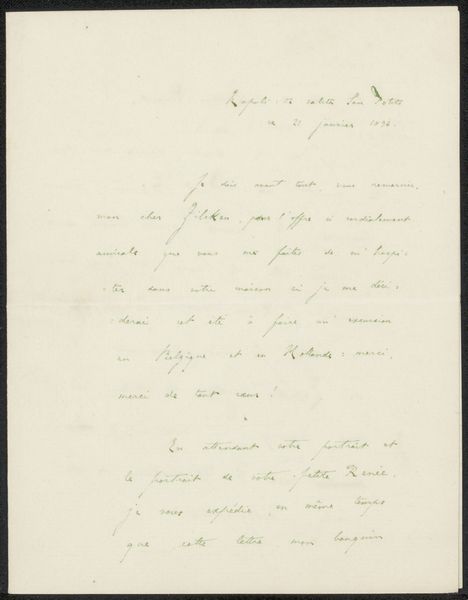 Napoli salita San Potito
21 janvier 1896.
Je dois avant tout, vous remercier,
mon cher Zilcken, pour l'offre si cordialement
amicale que vous me faites de m'hospi-
-ter dans votre maison si je me déci-
-derai cet été à faire un' excursion
en Belgique et en Hollande : merci,
merci de tout cœur !
En attendant votre portrait et
le portrait de votre petite Renée,
je vous expédie, en même temps
que cette lettre mon bouquin